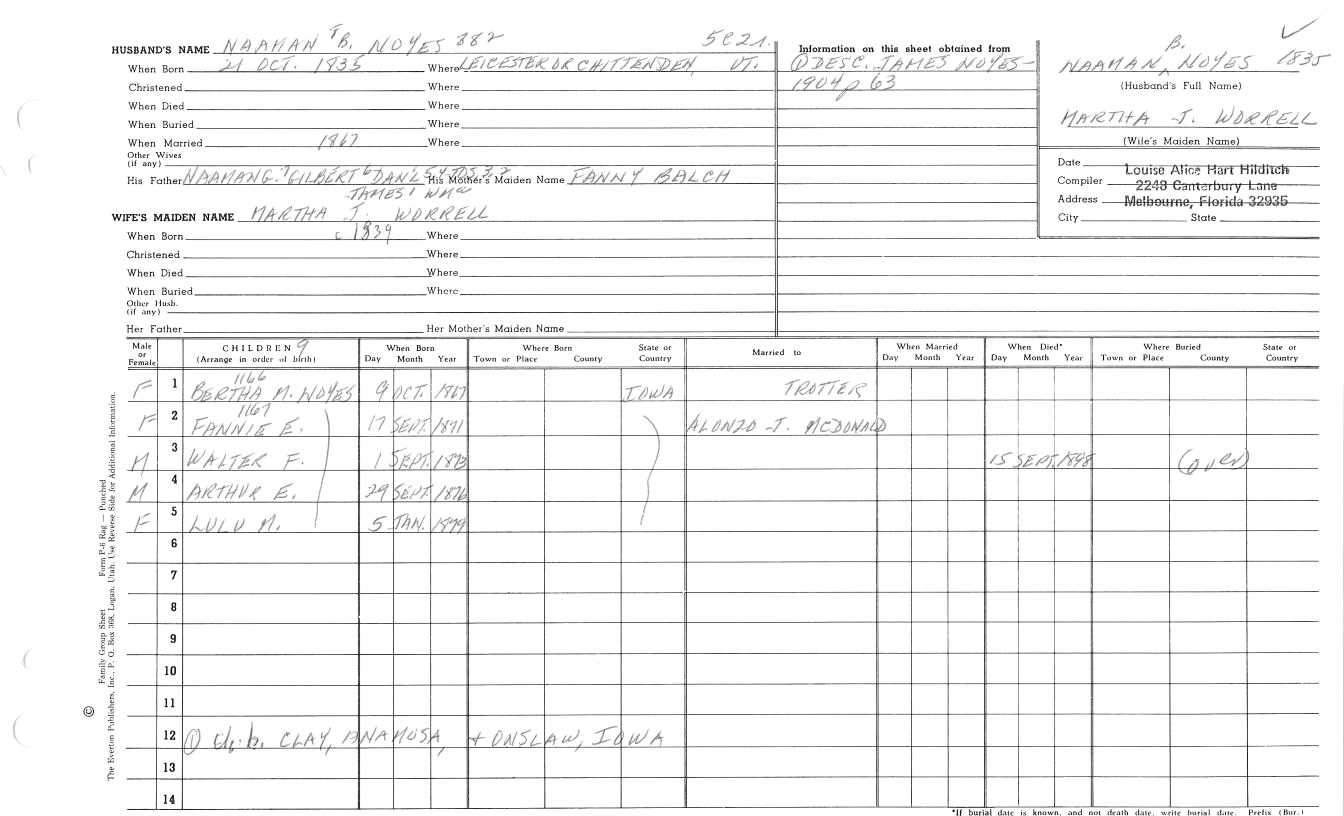 HUSBAND'S NAME NAAMAN B. NOYES 882 5C21.
When Born 21 OCT. 1835 Where LEICESTER OR CHITTENDEN, VT.
Christened Where
When Died Where
When Buried Where
When Married 1867 Where
Other Wives
(if any)
His Father NAAMAN G. GILBERT DAN'L His Mother's Maiden Name FANNY BALCH
JAMES WM
WIFE'S MAIDEN NAME MARTHA J. WORRELL
When Born c 1839 Where
Christened Where
When Died Where
When Buried Where
Other Husb.
(if any)
Her Father Her Mother's Maiden Name
Information on this sheet obtained from
① DESC. JAMES NOYES-
1904 p 63
B.
NAAMAN ^ NOYES 1835
(Husband's Full Name)
MARTHA J. WORRELL
(Wife's Maiden Name)
Date
Compiler Louise Alice Hart Hilditch
2248 Canterbury Lane
Address Melbourne, Florida 32935
City State
Male or Female CHILDREN 9 (Arrange in order of birth) When Born Day Month Year Where Born Town or Place County State or Country Married to When Married Day Month Year When Died* Day Month Year Where Buried Town or Place County State or Country
1166
F 1 BERTHA M. NOYES 9 OCT. 1867 IOWA TROTTER
1167
F 2 FANNIE E. 17 SEPT. 1871 ALONZO J. MCDONALD
M 3 WALTER F. 1 SEPT. 1873 15 SEPT. 1898 (over)
M 4 ARTHUR E. 29 SEPT. 1876
F 5 LULU M. 5 JAN. 1879
6
7
8
9
10
11
12 ① ch. b. CLAY, ANAMOSA, + ONSLAW, IOWA
13
14
*If burial date is known, and not death date, write burial date. Prefix (Bur.)
Family Group Sheet Form P-6 Rag — Punched
© The Everton Publishers, Inc., P. O. Box 368, Logan, Utah. Use Reverse Side for Additional Information.